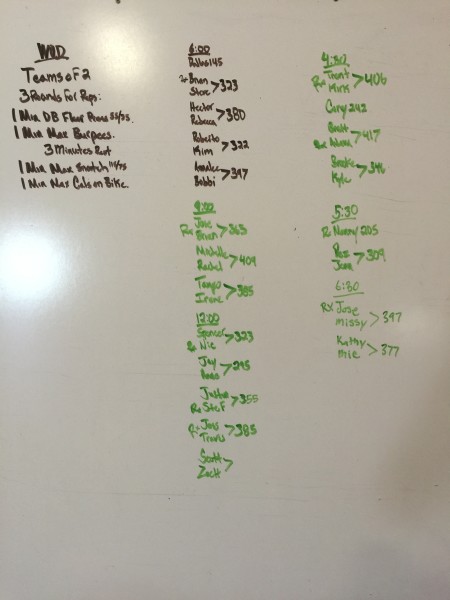 WOD
Teams of 2
3 Rounds For Reps:
1 Min DB Floor Press 55/35.
1 Min Max Burpees.
3 Minutes Rest
1 Min Max Snatch 115/75
1 Min Max Cals on Bike.
6:00
145
Rx Brian
Steve >323
Hector
Rebecca >380
Roberto
Kim >322
Annalee
Bobbi >397
9:00
Rx Jose
Brian >363
Michelle
Rachel >409
Tanya
Irene >385
12:00
Spencer
Nic >323
Jay
>295
Justin
Rx Stef >355
Rx Joes
Travis >385
Scott
Zach >
4:30
Rx Trent
Kris >406
Cary 242
Brett
Rx Adam >417
Kyle >346
5:30
Rx Nanny 205
Jenn >309
6:30
Rx Jose
missy >397
Kathy
mie >377